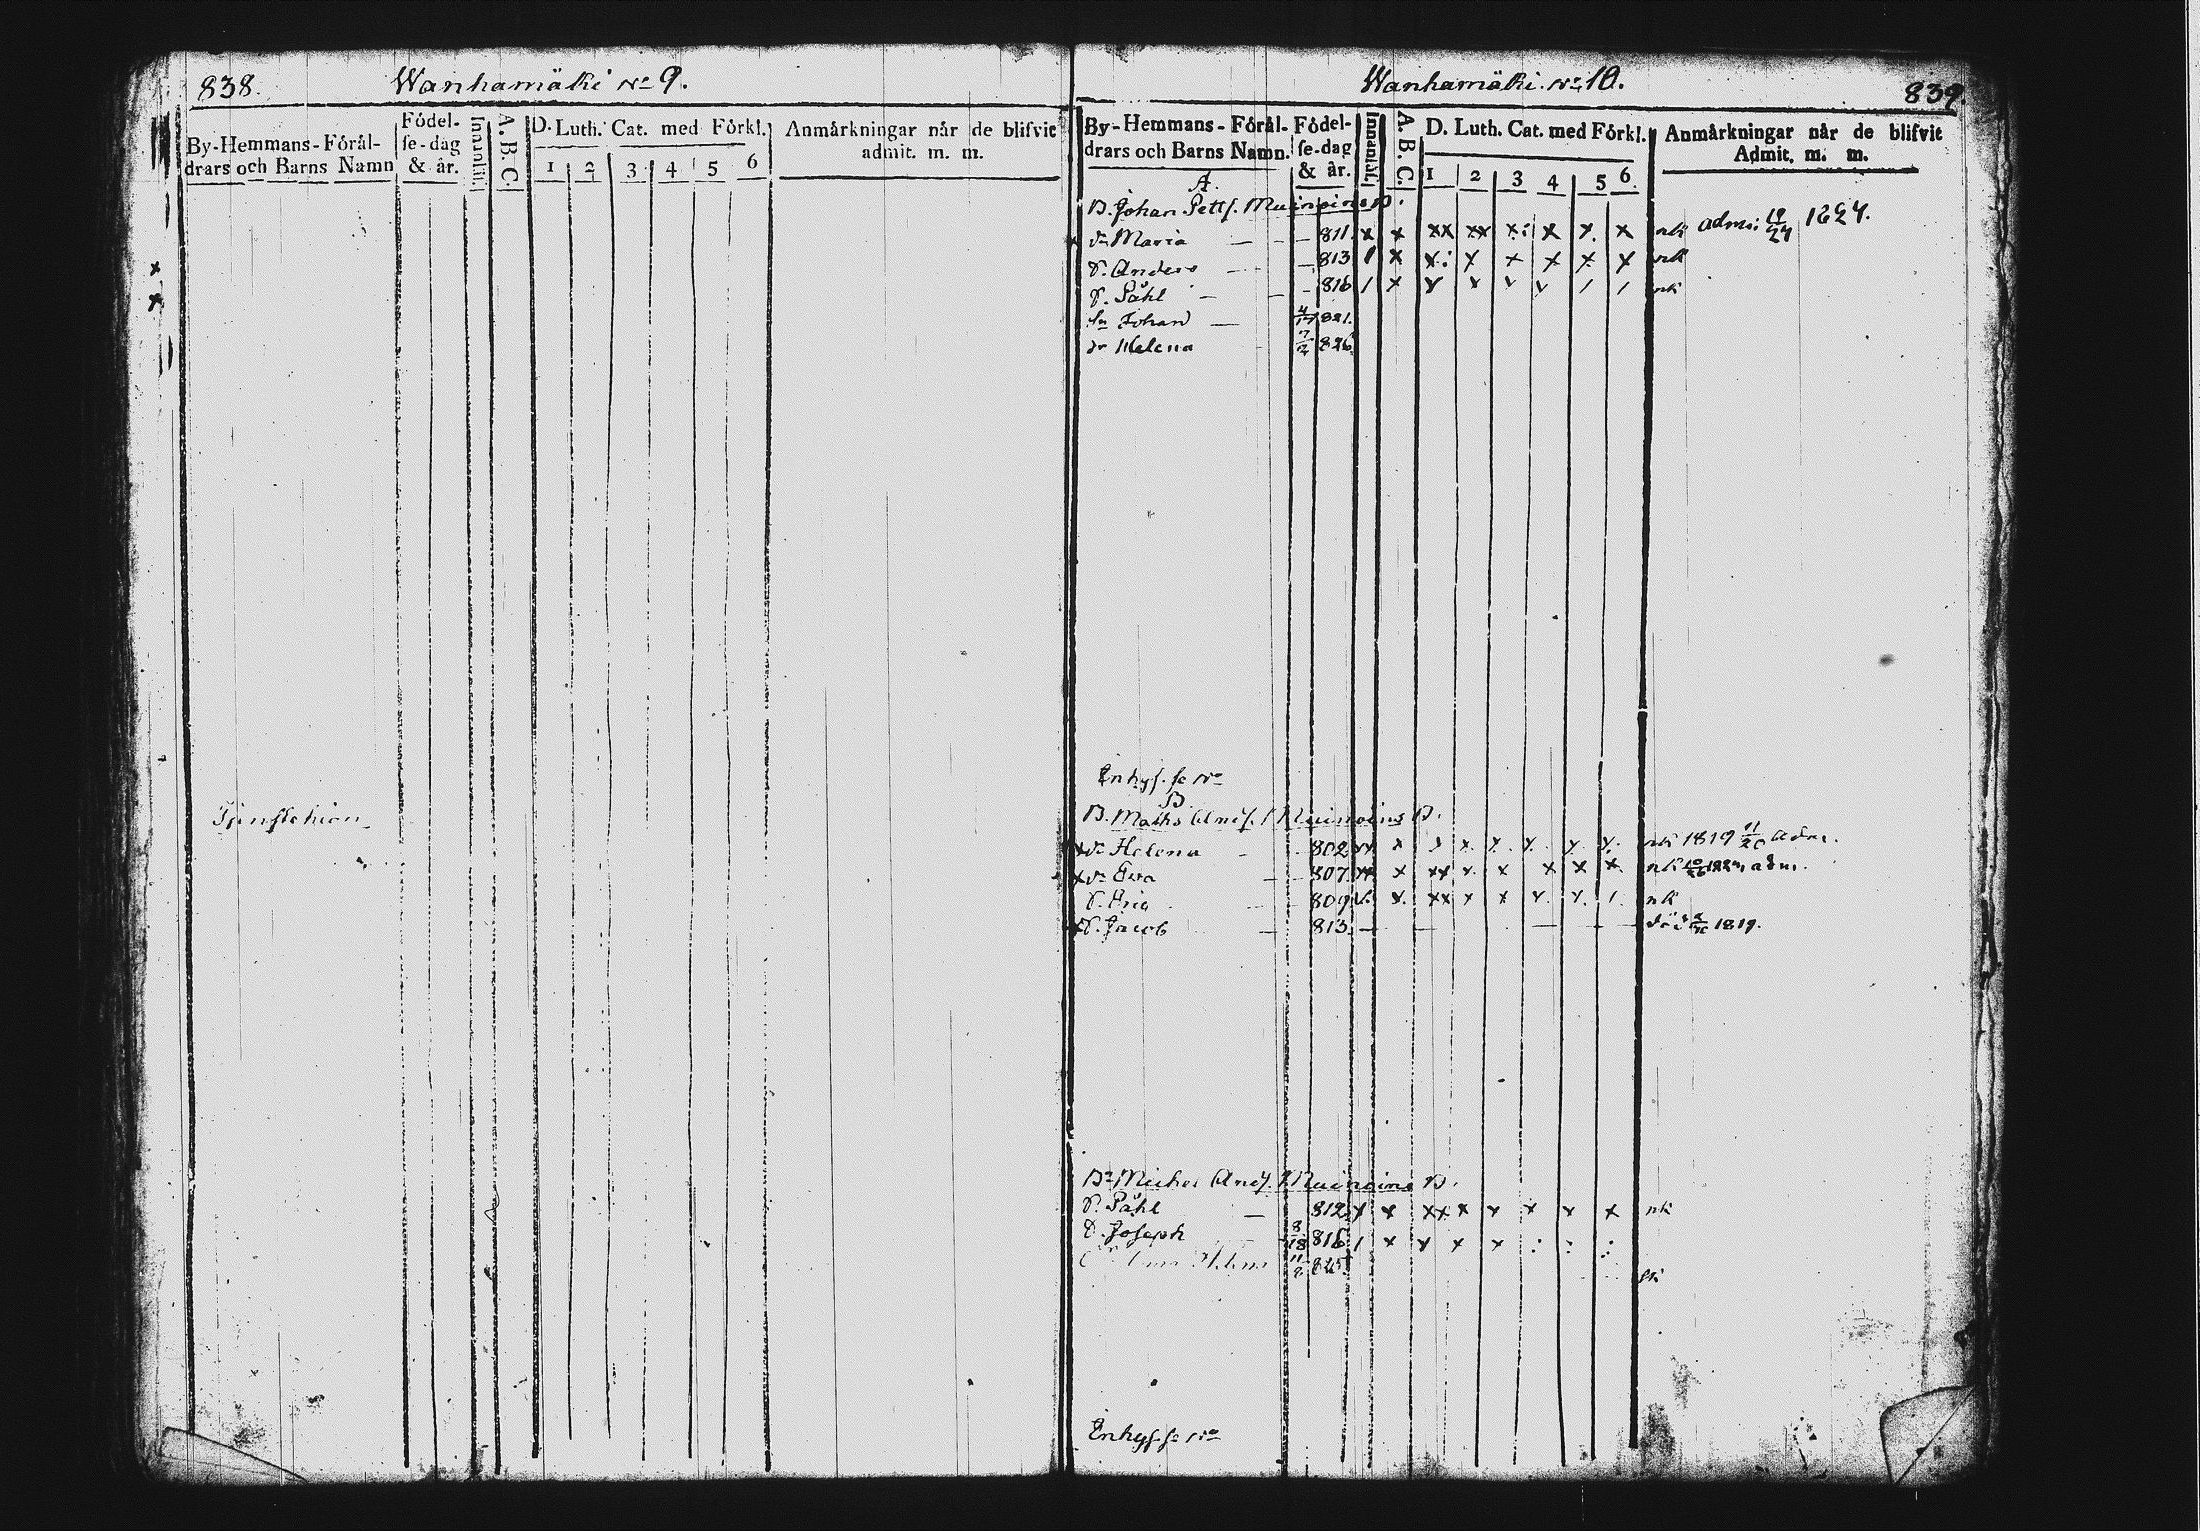 838.
Wanhamäki No 9.
By-Hemmans-Förål-
drars och Barns Namn
Födel-
se-dag
& år.
Innantill.
A. B. C.
D. Luth. Cat. med Förkl.
1 2 3 4 5 6
Anmårkningar når de blifvit
admit. m. m.
Tjenstehion
Wanhamäki No 10.
839.
By-Hemmans-Förål-
drars och Barns Namn.
Födel-
se-dag
& år.
Innantill.
A. B. C.
D. Luth. Cat. med Förkl.
1 2 3 4 5 6
Anmårkningar når de blifvit
Admit. m. m.
A.
B. Johan Petts. Muinoins B.
dr Maria — 811. x x xx xx x x x x nk adm: 19/24 1824.
S. Anders — 813 x x x x x x x nk
S. Påhl — 816 / x x x x x / / nk
Sn Johan — 821.
dr Helena 7/2 826
Enhys. se No
B
B. Maths Ands. Muinoins B.
x dr Helena — 802 xx x x x x x x x nk 1819 11/20 adm.
x dr Eva — 807. xx x xx x x x x x nk adm.
S. Eric — 809 x xx x x x x / nk
x S. Jacob — 813. — död 1819.
Br Michel Ands. Muinoins B.
S. Påhl — 812 x x xx x x x x x nk
S. Joseph 8/18 816 / x x x x
Helena 11/8
Enhys. se No